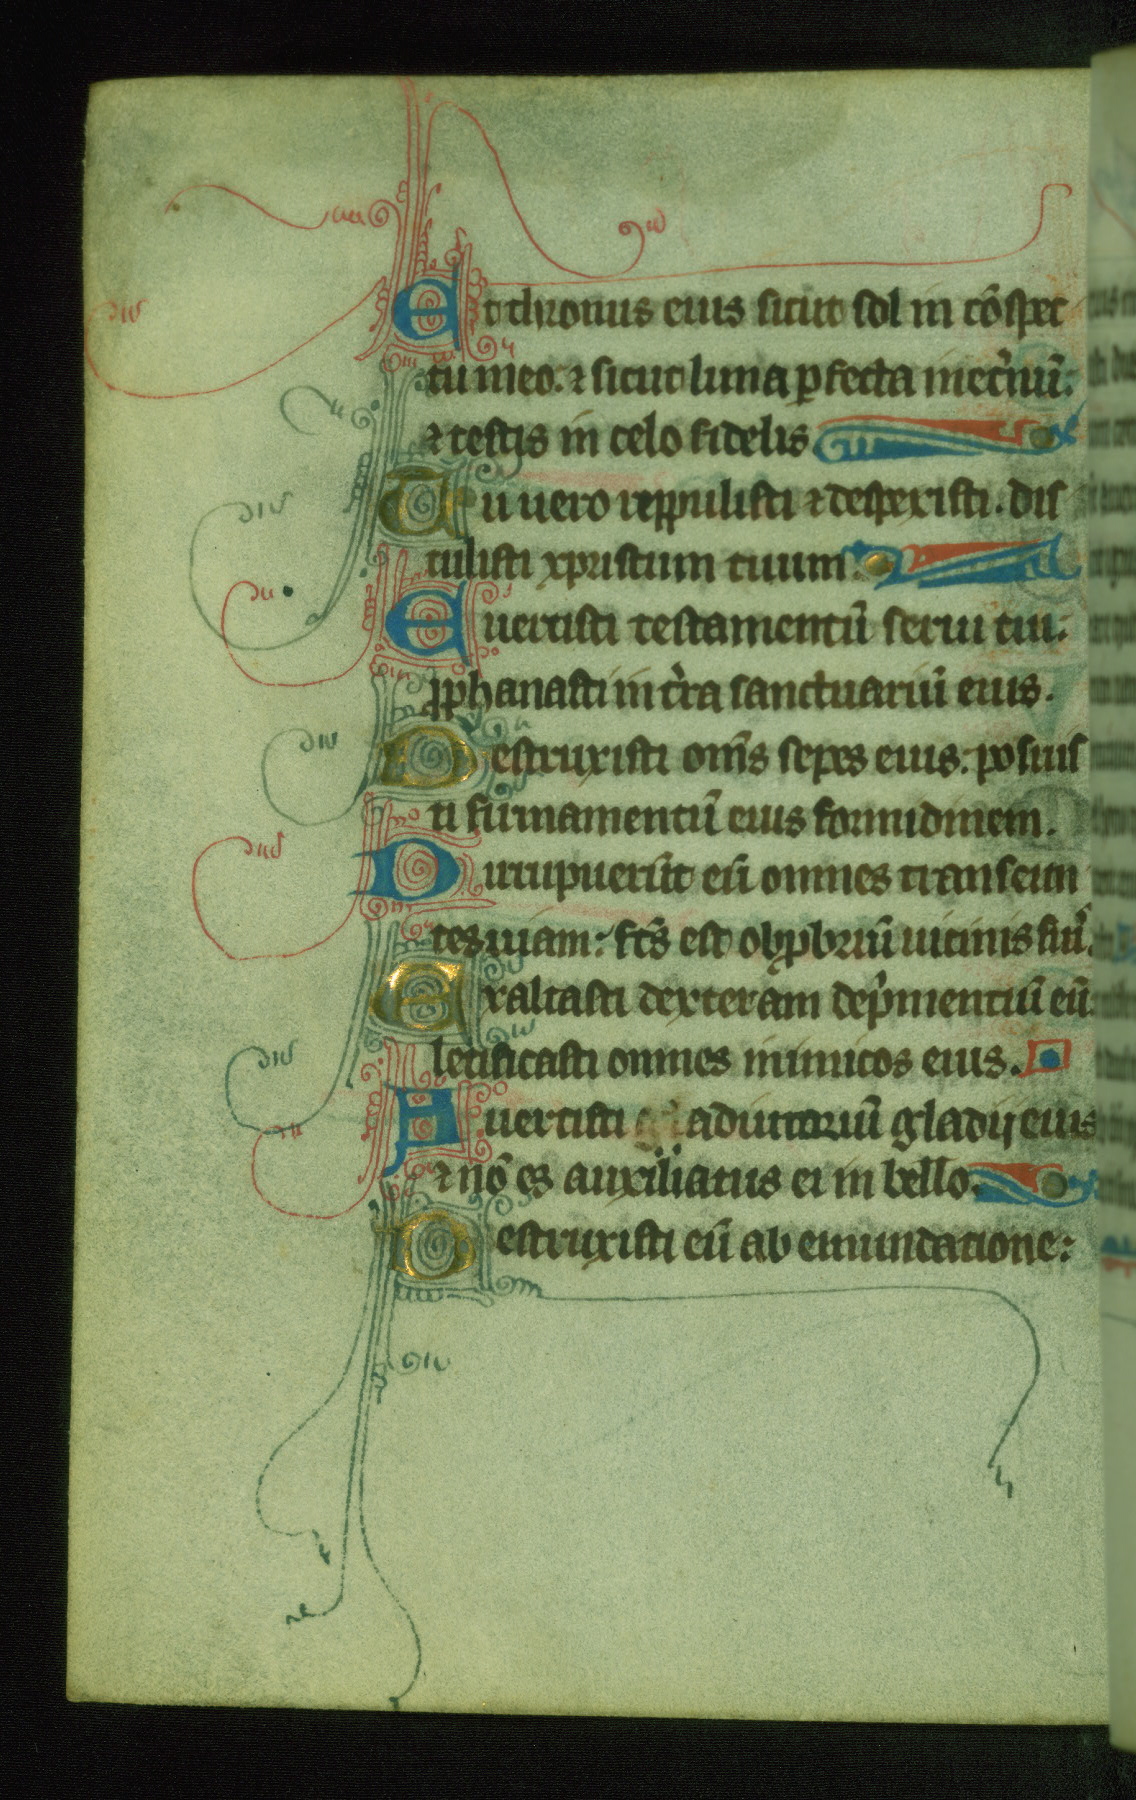 Et thronus eius sicut sol in cōspec
tu meo. ⁊ sicut luna ꝑfecta inet̾nū.
⁊ testis in celo fidelis
Tu uero reppulisti ⁊ despexisti. dis
tulisti xpristum tuum.
Euertisti testamentū serui tui.
ꝓphanasti in t̾ra sanctuariū eius.
Destruxisti om̄s sepes eius. posuis
ti firmamentū eius formidinem.
Diripuerūt eū omnes transeun
tes uiam: fc̄s est obꝓbriū uicinis suis.
Exaltasti dexteram dep̾mentiū eū
letificasti omnes inimicos eius.
Auertisti adiutoriū gladij eius
⁊ nō es auxiliatus ei in bello.
Destruxisti eū ab emundatione: